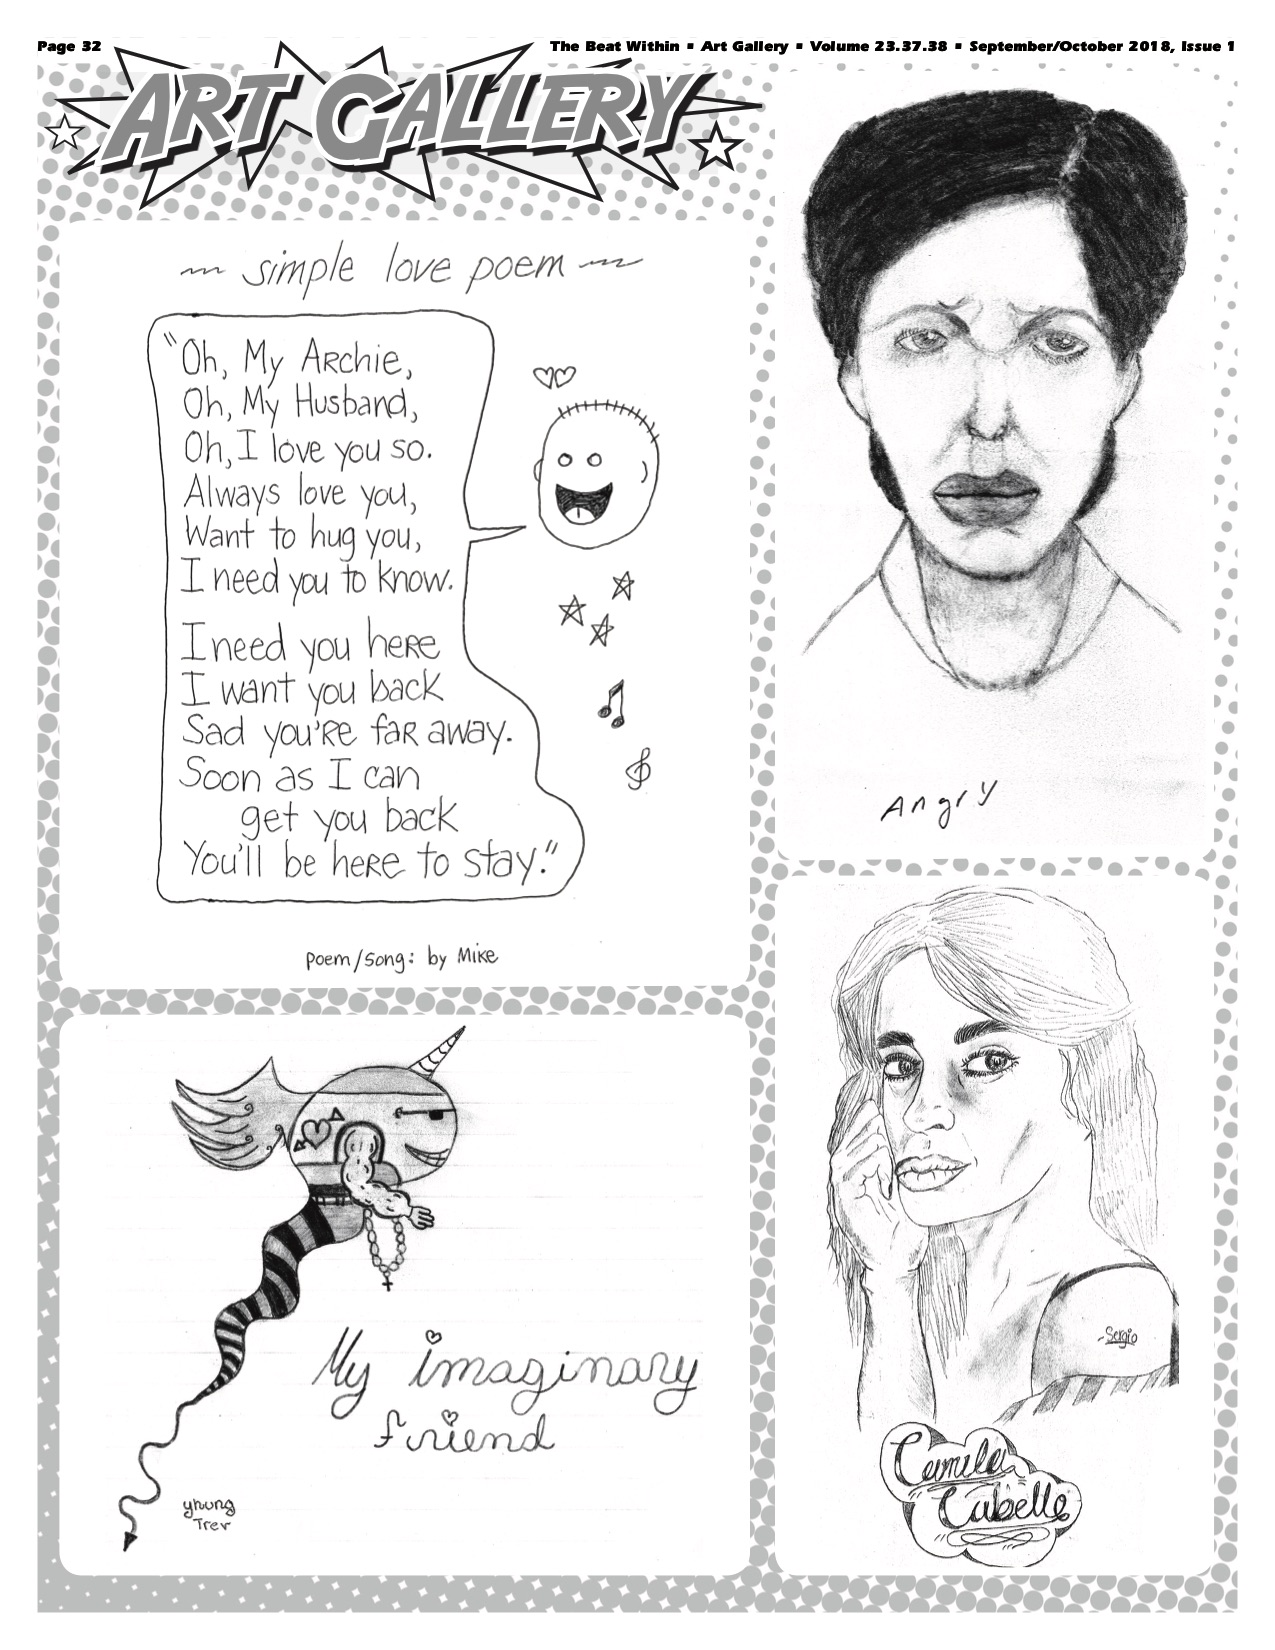 Page 32
The Beat Within ▪ Art Gallery ▪ Volume 23.37.38 ▪ September/October 2018, Issue 1
ART GALLERY
~ simple love poem ~
"Oh, My Archie,
Oh, My Husband,
Oh, I love you so.
Always love you,
Want to hug you,
I need you to know.
I need you here
I want you back
Sad you're far away.
Soon as I can
get you back
You'll be here to stay."
poem/song: by Mike
Angry
My imaginary
friend
yhung
Trev
-Sergio
Camila
Cabello